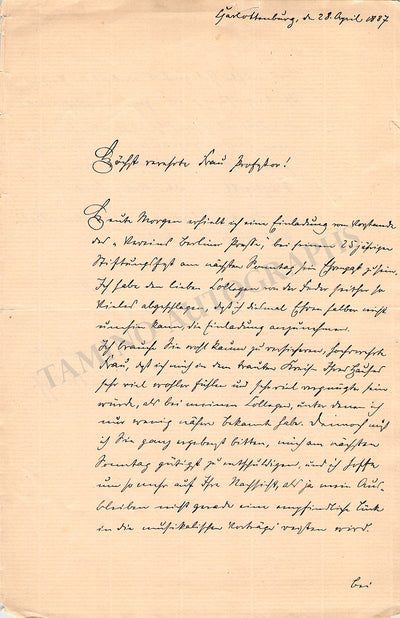 Charlottenburg, de 28. April 1887
Höchst verehrte Frau Professor!
Heute Morgen erhielt ich eine Einladung vom Vorstande
des „Vereins Berliner Presse“, bei seinem 25jährigen
Stiftungsfest am nächsten Sonntag sein Ehrengast zu sein.
Ich habe den lieben Collegen von der Feder seither so
Vieles abgeschlagen, daß ich diesmal Ehren halber nicht
umhin kann, die Einladung anzunehmen.
Ich brauche Sie wohl kaum zu versichern, hochverehrte
Frau, daß ich mich in dem trauten Kreise Ihres Hauses
sehr viel wohler fühlen und sehr viel vergnügter sein
würde, als bei meinen Collegen, unter denen ich
nur wenig nähere Bekannte habe. Dennoch muß
ich Sie ganz ergebenst bitten, mich am nächsten
Sonntag gütigst zu entschuldigen, und ich hoffe
um so mehr auf Ihre Nachsicht, als ja mein Aus-
bleiben nicht gerade eine empfindliche Lücke
in die musikalischen Vorträge reißen wird.
bei
TAMINO AUTOGRAPHS